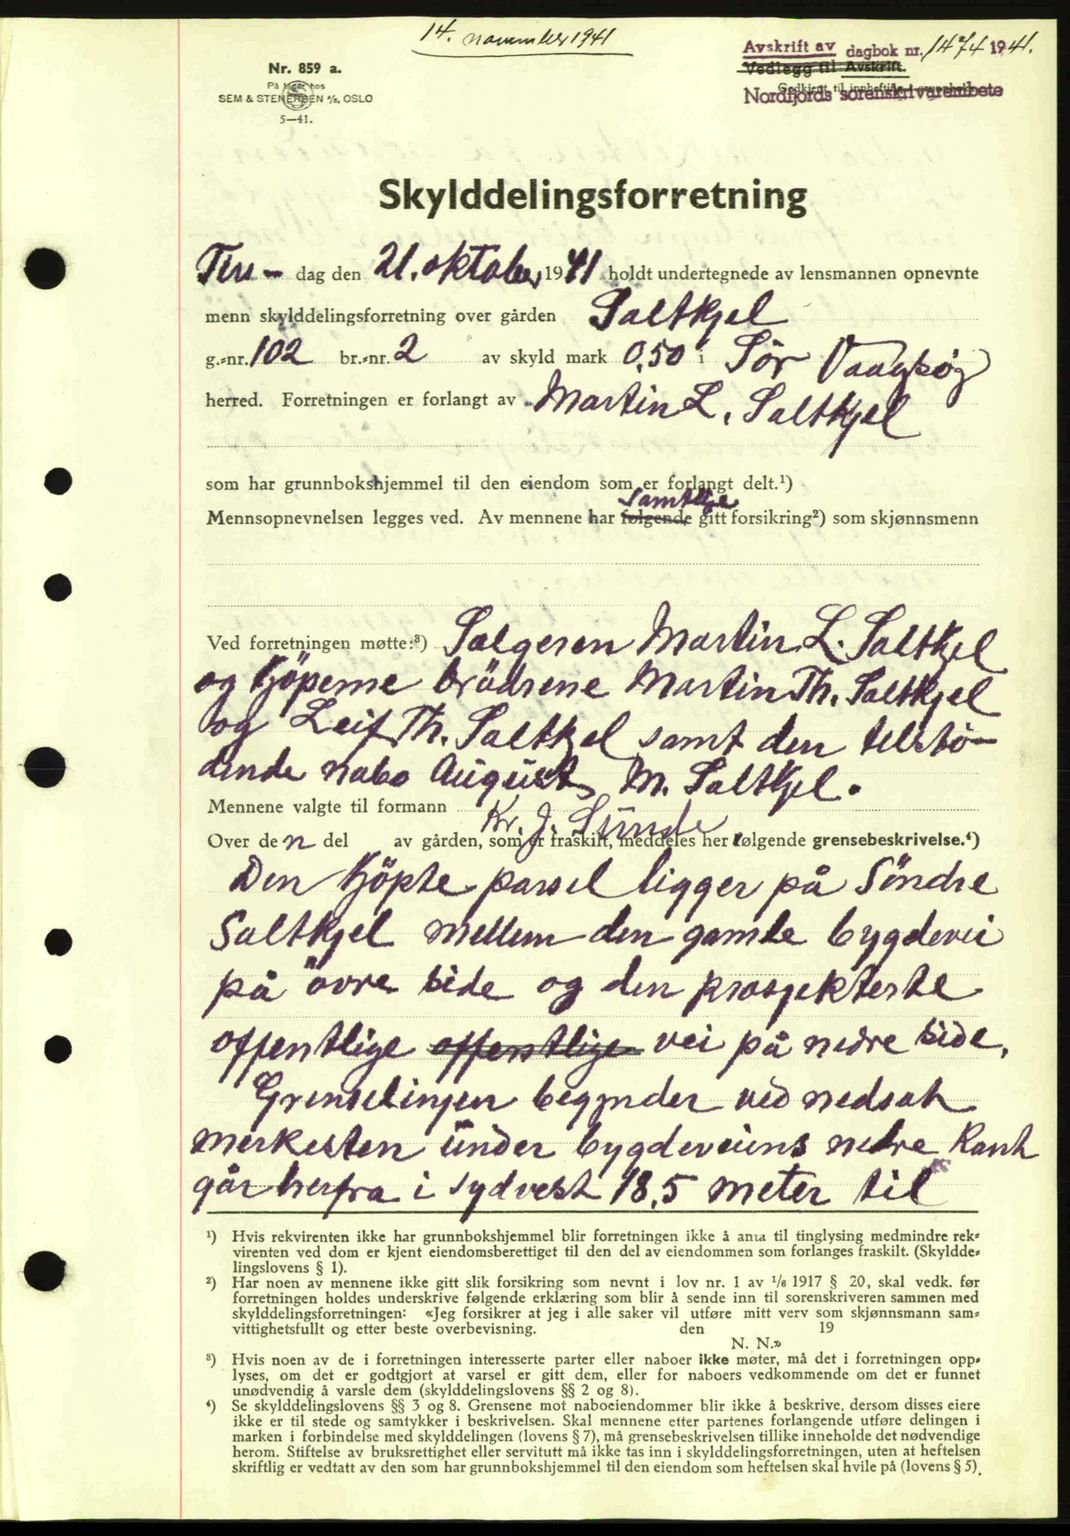 14. november 1941
Avskrift av dagbok nr. 1474 1941.
Vedlegg til Avskrift.
Nordfjords sorenskrivarembete
Nr. 859 a.
På lager hos
SEM & STENERSEN A/S, OSLO
5—41.
Skylddelingsforretning
Tirs- dag den 21. oktober 1941 holdt undertegnede av lensmannen opnevnte
menn skylddelingsforretning over gården Saltkjel
g.-nr. 102 br.-nr. 2 av skyld mark 0,50 i Sör Vaagsøy
herred. Forretningen er forlangt av Martin L. Saltkjel
som har grunnbokshjemmel til den eiendom som er forlangt delt.¹)
samtlige
Mennsopnevnelsen legges ved. Av mennene har følgende gitt forsikring²) som skjønnsmenn
Ved forretningen møtte:³) Selgeren Martin L. Saltkjel
og kjöperne brödrene Martin Th. Saltkjel
og Leif Th. Saltkjel samt den tilstö-
dende nabo August M. Saltkjel.
Mennene valgte til formann Kr. J. Sunde
Over den del av gården, som er fraskilt, meddeles her følgende grensebeskrivelse.⁴)
Den kjöpte parsel ligger på Söndre
Saltkjel mellem den gamle bygdevei
på övre side og den prosjekterte
offentlige offentlige vei på nedre side.
Grenselinjen begynder ved nedsatt
merkesten under bygdeveiens nedre kant
går herfra i sydvest 18,5 meter til
¹) Hvis rekvirenten ikke har grunnbokshjemmel blir forretningen ikke å anta til tinglysing medmindre rek-
virenten ved dom er kjent eiendomsberettiget til den del av eiendommen som forlanges fraskilt. (Skyldde-
lingslovens § 1).
²) Har noen av mennene ikke gitt slik forsikring som nevnt i lov nr. 1 av 1/6 1917 § 20, skal vedk. før
forretningen holdes underskrive følgende erklæring som blir å sende inn til sorenskriveren sammen med
skylddelingsforretningen: «Jeg forsikrer at jeg i alle saker vil utføre mitt verv som skjønnsmann sam-
vittighetsfullt og etter beste overbevisning. den 19
N. N.»
³) Hvis noen av de i forretningen interesserte parter eller naboer ikke møter, må det i forretningen opp-
lyses, om det er godtgjort at varsel er gitt dem, eller for naboers vedkommende om det er funnet
unødvendig å varsle dem (skylddelingslovens §§ 2 og 8).
⁴) Se skylddelingslovens §§ 3 og 8. Grensene mot naboeiendommer blir ikke å beskrive, dersom disses eiere
ikke er til stede og samtykker i beskrivelsen. Skal mennene etter partenes forlangende utføre delingen i
marken i forbindelse med skylddelingen (lovens § 7), må grensebeskrivelsen tillike inneholde det nødvendige
herom. Stiftelse av bruksrettighet eller servitutt må ikke tas inn i skylddelingsforretningen, uten at heftelsen
skriftlig er vedtatt av den som har grunnbokshjemmel til den eiendom som heftelsen skal hvile på (lovens § 5).